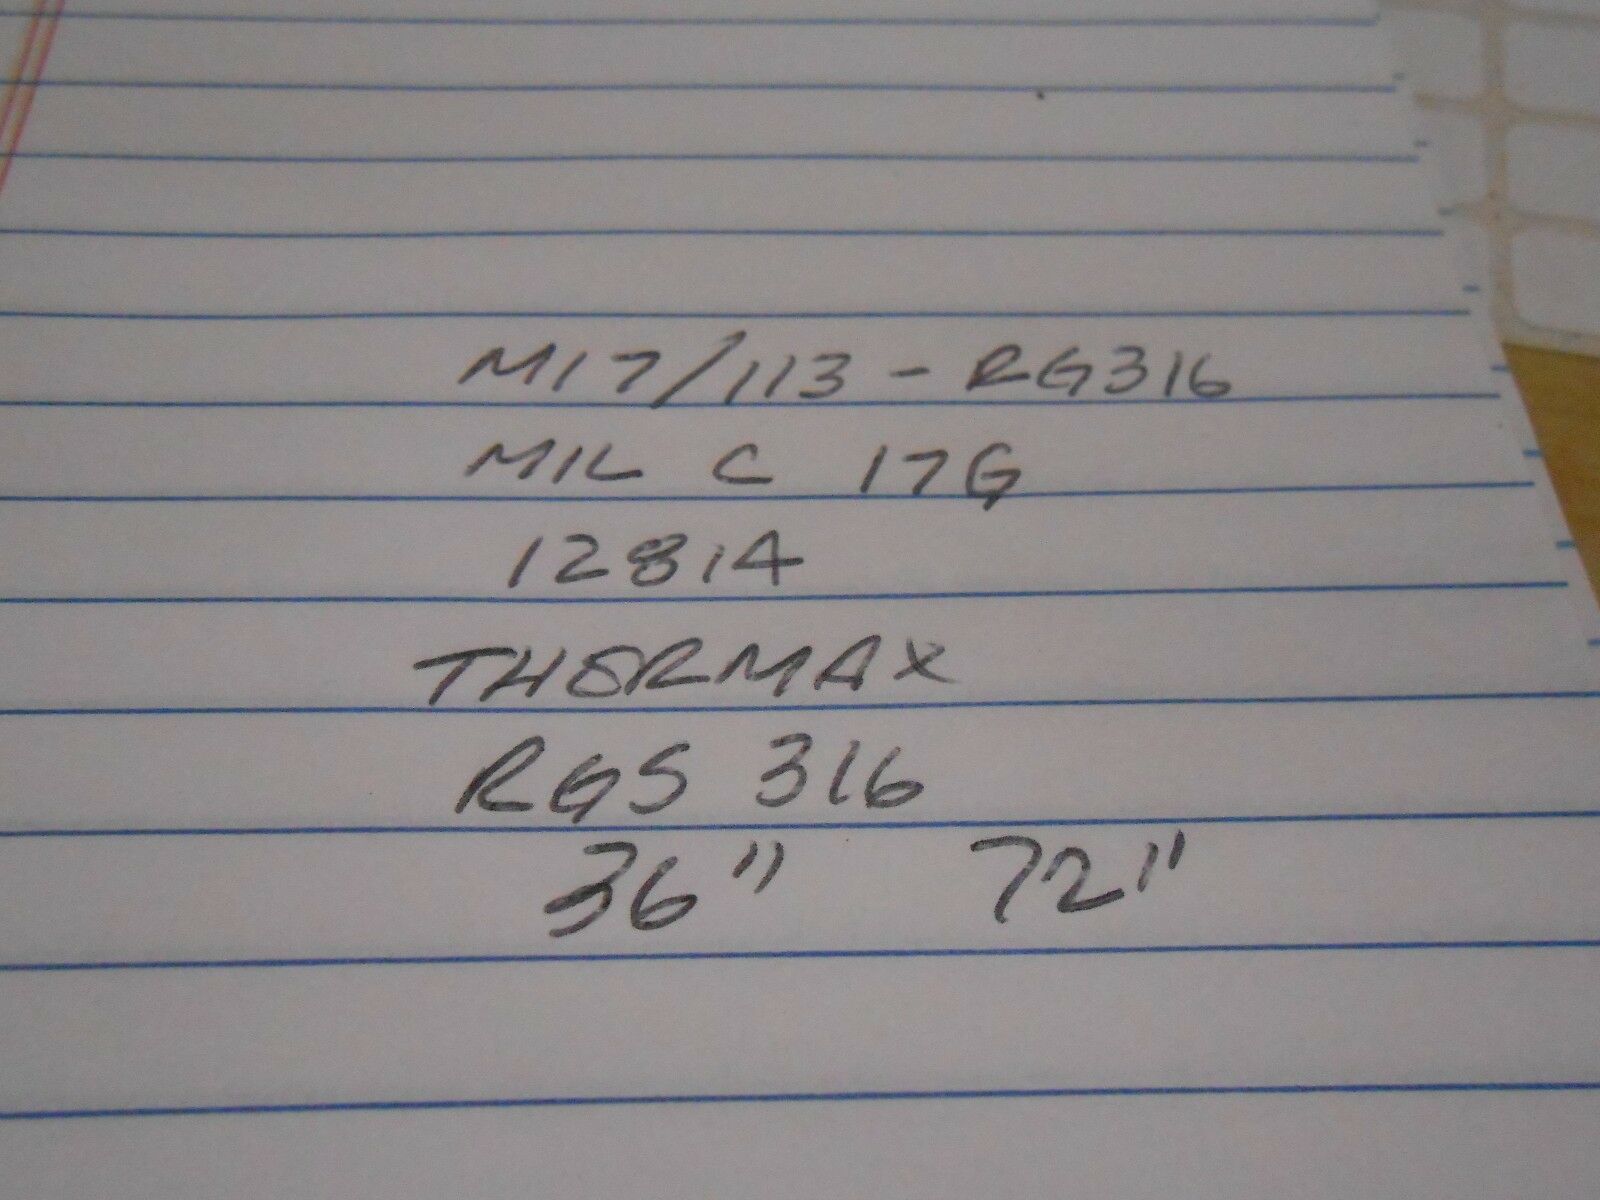 M17/113-RG316
MIL C 17G
12814
THERMAX
RGS 316
36" 72"